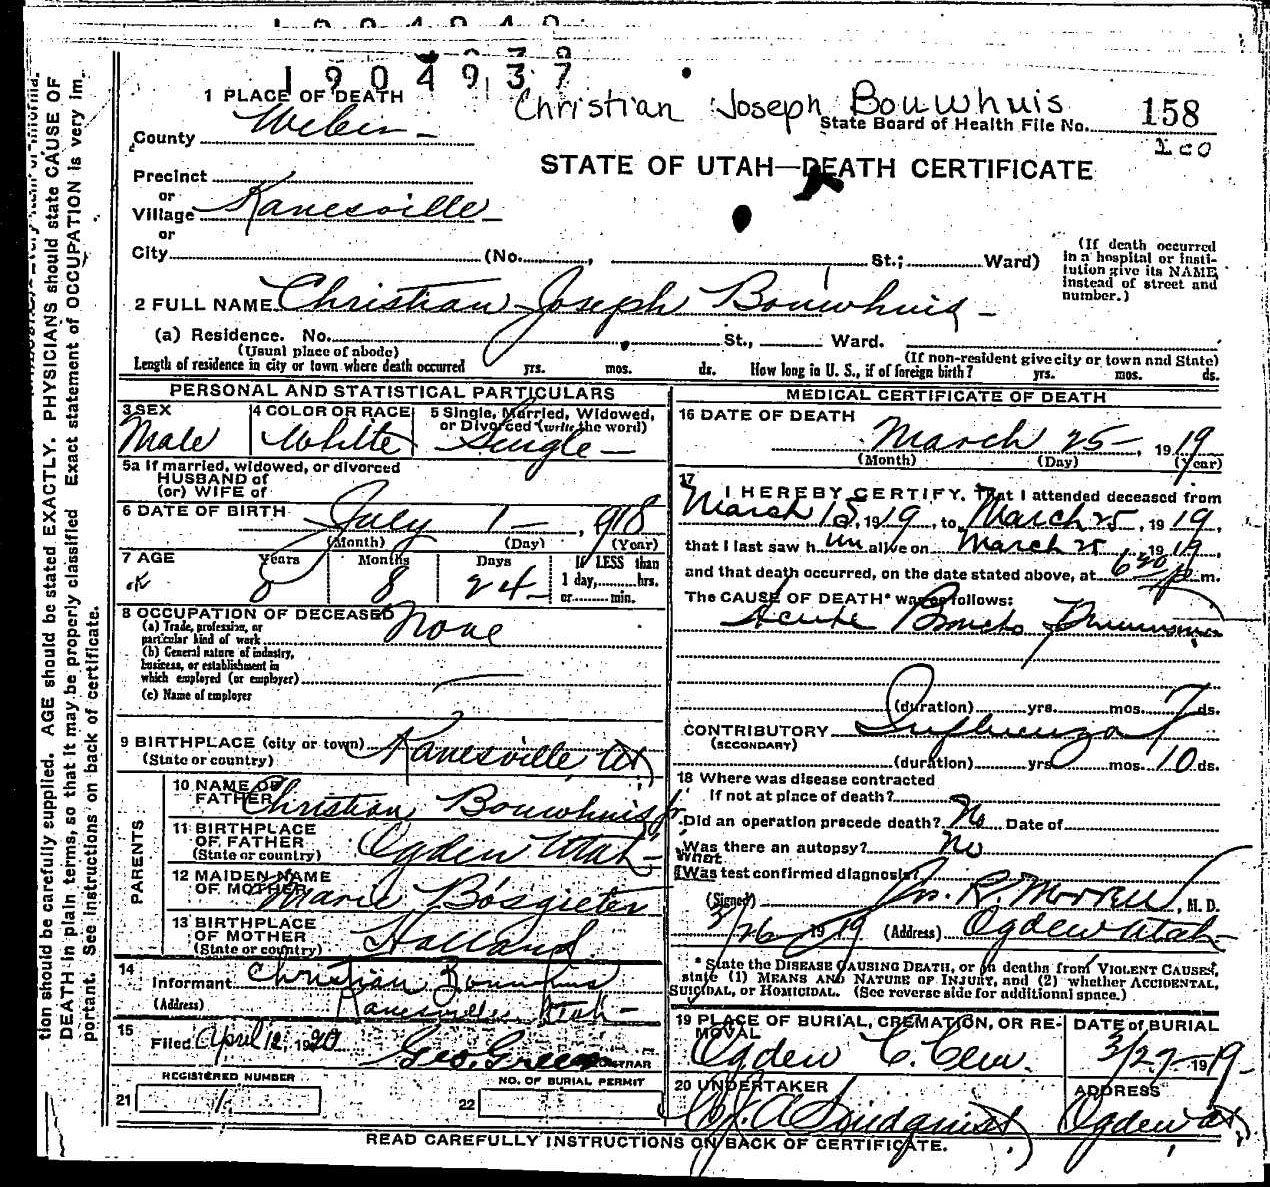 1904937
Christian Joseph Bouwhuis
1 PLACE OF DEATH
State Board of Health File No. 158
County Weber
STATE OF UTAH—DEATH CERTIFICATE
Precinct
or
Village Kanesville
or
City (No. , St.; Ward)
(If death occurred
in a hospital or insti-
tution give its NAME
instead of street and
number.)
2 FULL NAME Christian Joseph Bouwhuis
(a) Residence. No. St., Ward.
(Usual place of abode) (If non-resident give city or town and State)
Length of residence in city or town where death occurred yrs. mos. ds. How long in U. S., if of foreign birth? yrs. mos. ds.
PERSONAL AND STATISTICAL PARTICULARS
3 SEX
Male
4 COLOR OR RACE
White
5 Single, Married, Widowed,
or Divorced (write the word)
Single
5a If married, widowed, or divorced
HUSBAND of
(or) WIFE of
6 DATE OF BIRTH July 1 , 1918
(Month) (Day) (Year)
7 AGE Years Months Days If LESS than
1 day, hrs.
or min.
OK 0 8 24
8 OCCUPATION OF DECEASED None
(a) Trade, profession, or
particular kind of work
(b) General nature of industry,
business, or establishment in
which employed (or employer)
(c) Name of employer
9 BIRTHPLACE (city or town) Kanesville, Ut
(State or country)
PARENTS
10 NAME OF
FATHER Christian Bouwhuis Jr.
11 BIRTHPLACE
OF FATHER Ogden Utah
(State or country)
12 MAIDEN NAME
OF MOTHER Marie Bosgieter
13 BIRTHPLACE
OF MOTHER Holland
(State or country)
14
Informant Christian Bouwhuis
(Address) Kanesville Utah
15
Filed April 12, 1920 Geo. Green
REGISTRAR
REGISTERED NUMBER
21 1
NO. OF BURIAL PERMIT
22
MEDICAL CERTIFICATE OF DEATH
16 DATE OF DEATH
March 25 , 1919
(Month) (Day) (Year)
17
I HEREBY CERTIFY, That I attended deceased from
March 18, 1919, to March 25, 1919,
that I last saw him alive on March 25 1919,
and that death occurred, on the date stated above, at 6 20 p m.
The CAUSE OF DEATH* was as follows:
Acute Broncho Pneumonia
(duration) yrs. mos. 7 ds.
CONTRIBUTORY Influenza
(SECONDARY)
(duration) yrs mos. 10 ds.
18 Where was disease contracted
If not at place of death?
Did an operation precede death? No Date of
Was there an autopsy? No
What
Was test confirmed diagnosis?
(Signed) Jos. R. Morrell, M. D.
3/26 1919 (Address) Ogden Utah
* State the DISEASE CAUSING DEATH, or in deaths from VIOLENT CAUSES,
state (1) MEANS AND NATURE OF INJURY, and (2) whether ACCIDENTAL,
SUICIDAL, or HOMICIDAL. (See reverse side for additional space.)
19 PLACE OF BURIAL, CREMATION, OR RE-
MOVAL
Ogden C. Cem.
DATE of BURIAL
3/27 1919
20 UNDERTAKER
A Lindquist
ADDRESS
Ogden Ut
READ CAREFULLY INSTRUCTIONS ON BACK OF CERTIFICATE.
tion should be carefully supplied. AGE should be stated EXACTLY. PHYSICIANS should state CAUSE OF
DEATH in plain terms, so that it may be properly classified Exact statement of OCCUPATION is very im-
portant. See Instructions on back of certificate.